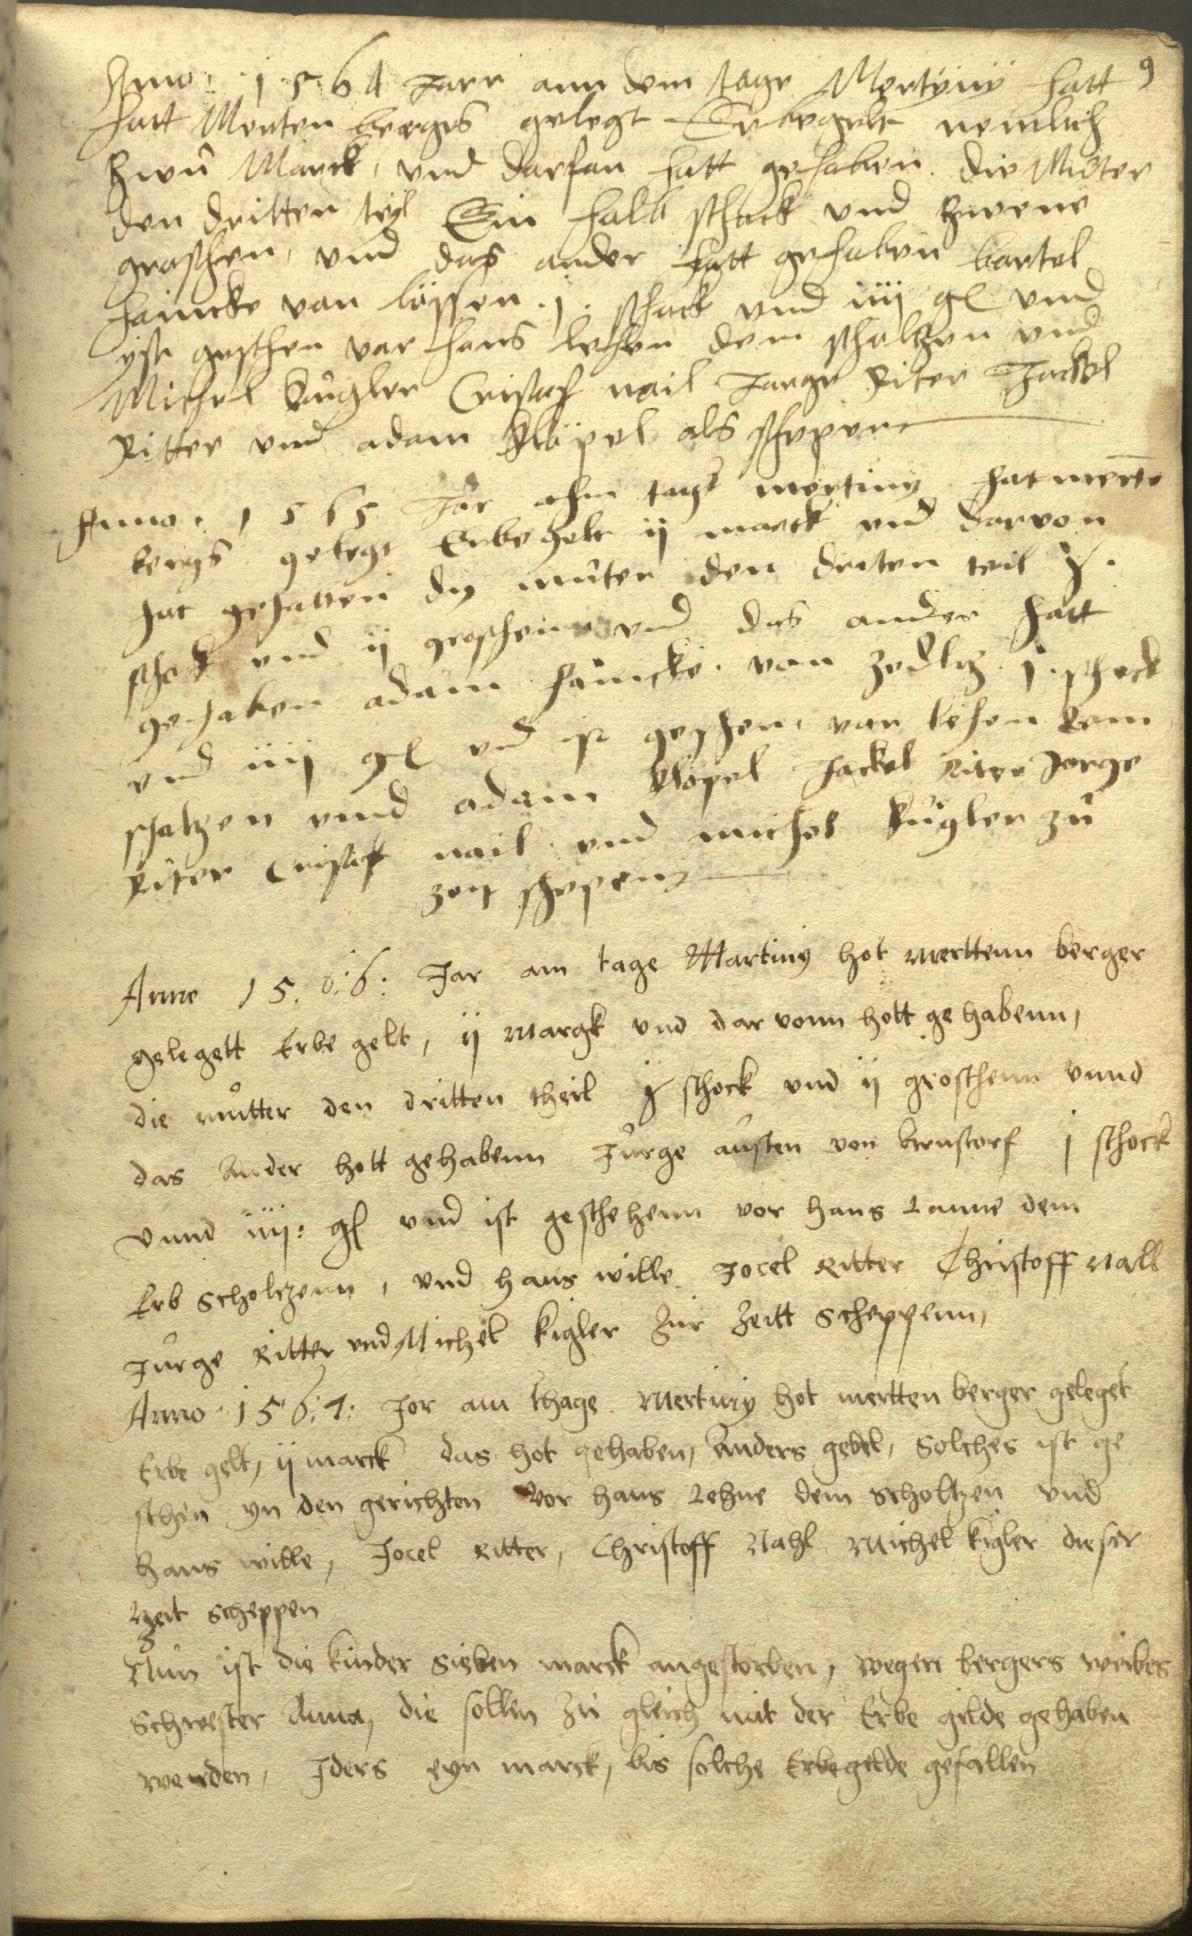 9
Anno 1564 Jarr ann dem tage Mertyny hatt
hatt Merten bergis gelegt Erbegelt nemlich
zwu Marck, vnd darfan hatt gehaben die Muter
den dritten teyl Ein halb schack vnd zwene
graschen, vnd das ander hatt gehaben bartel
haincke van .j. schack vnd iiij gl vnd
yst geschen var hans lehen dem schaltzen vnd
Michel kugler Cristof nail Jarge Riter Jackel
Ritter vnd adam klopel als schepen
Anno 1565 Jar ahm tage mertiny hat merte
bergs gelegt Erbegelt ij marck vnd darvon
hat gehaben dy muter den driten teil j
schock vnd ij groschenn vnd das ander hatt
gehaben adam haincke van zedlitz j schock
vnd iiij gl vnd ist geschen var lehen dem
schaltzen vnnd adam klopel Jackel Riter Jorge
Riter Cristoff nail vnd michel kugler zu
zeyt schepenn
Anno 15.6.6: Jar am tage Martiny hot Merttenn berger
gelegett Erbe gelt, ij Margk vnd dar vonn hott gehabenn,
die mutter den dritten theil j schock vnd ij groschenn vnnd
das Ander hott gehabenn Jurge austen von bernstorf j schock
vnnd iiij: gl vnd ist geschehenn vor hans Lanne dem
Erb scholtzenn, vnd hans wille Jocel Ritter Christoff Nall
Jurge Ritter vnd Michel kigler zur zeitt scheppenn,
Anno 156:7: Jor am thage Mertiny hot mertten berger geleget
Erbe gelt, ij marck das hot gehaben, Anders gebel, Solches ist ge
schen yn den gerichten Vor hans Lehne dem scholtzen vnd
hans wille, Jocel Ritter, Christoff Nahl Michel kigler dieser
Zeit scheppen
Nun ist die kinder sieben marck angestorben, wegen bergers weibes
Schwester Anna, die sollen zu gleich mit der Erbe gelde gehaben
werden, Jders eyn marck, bis solche Erbegelde gefallen